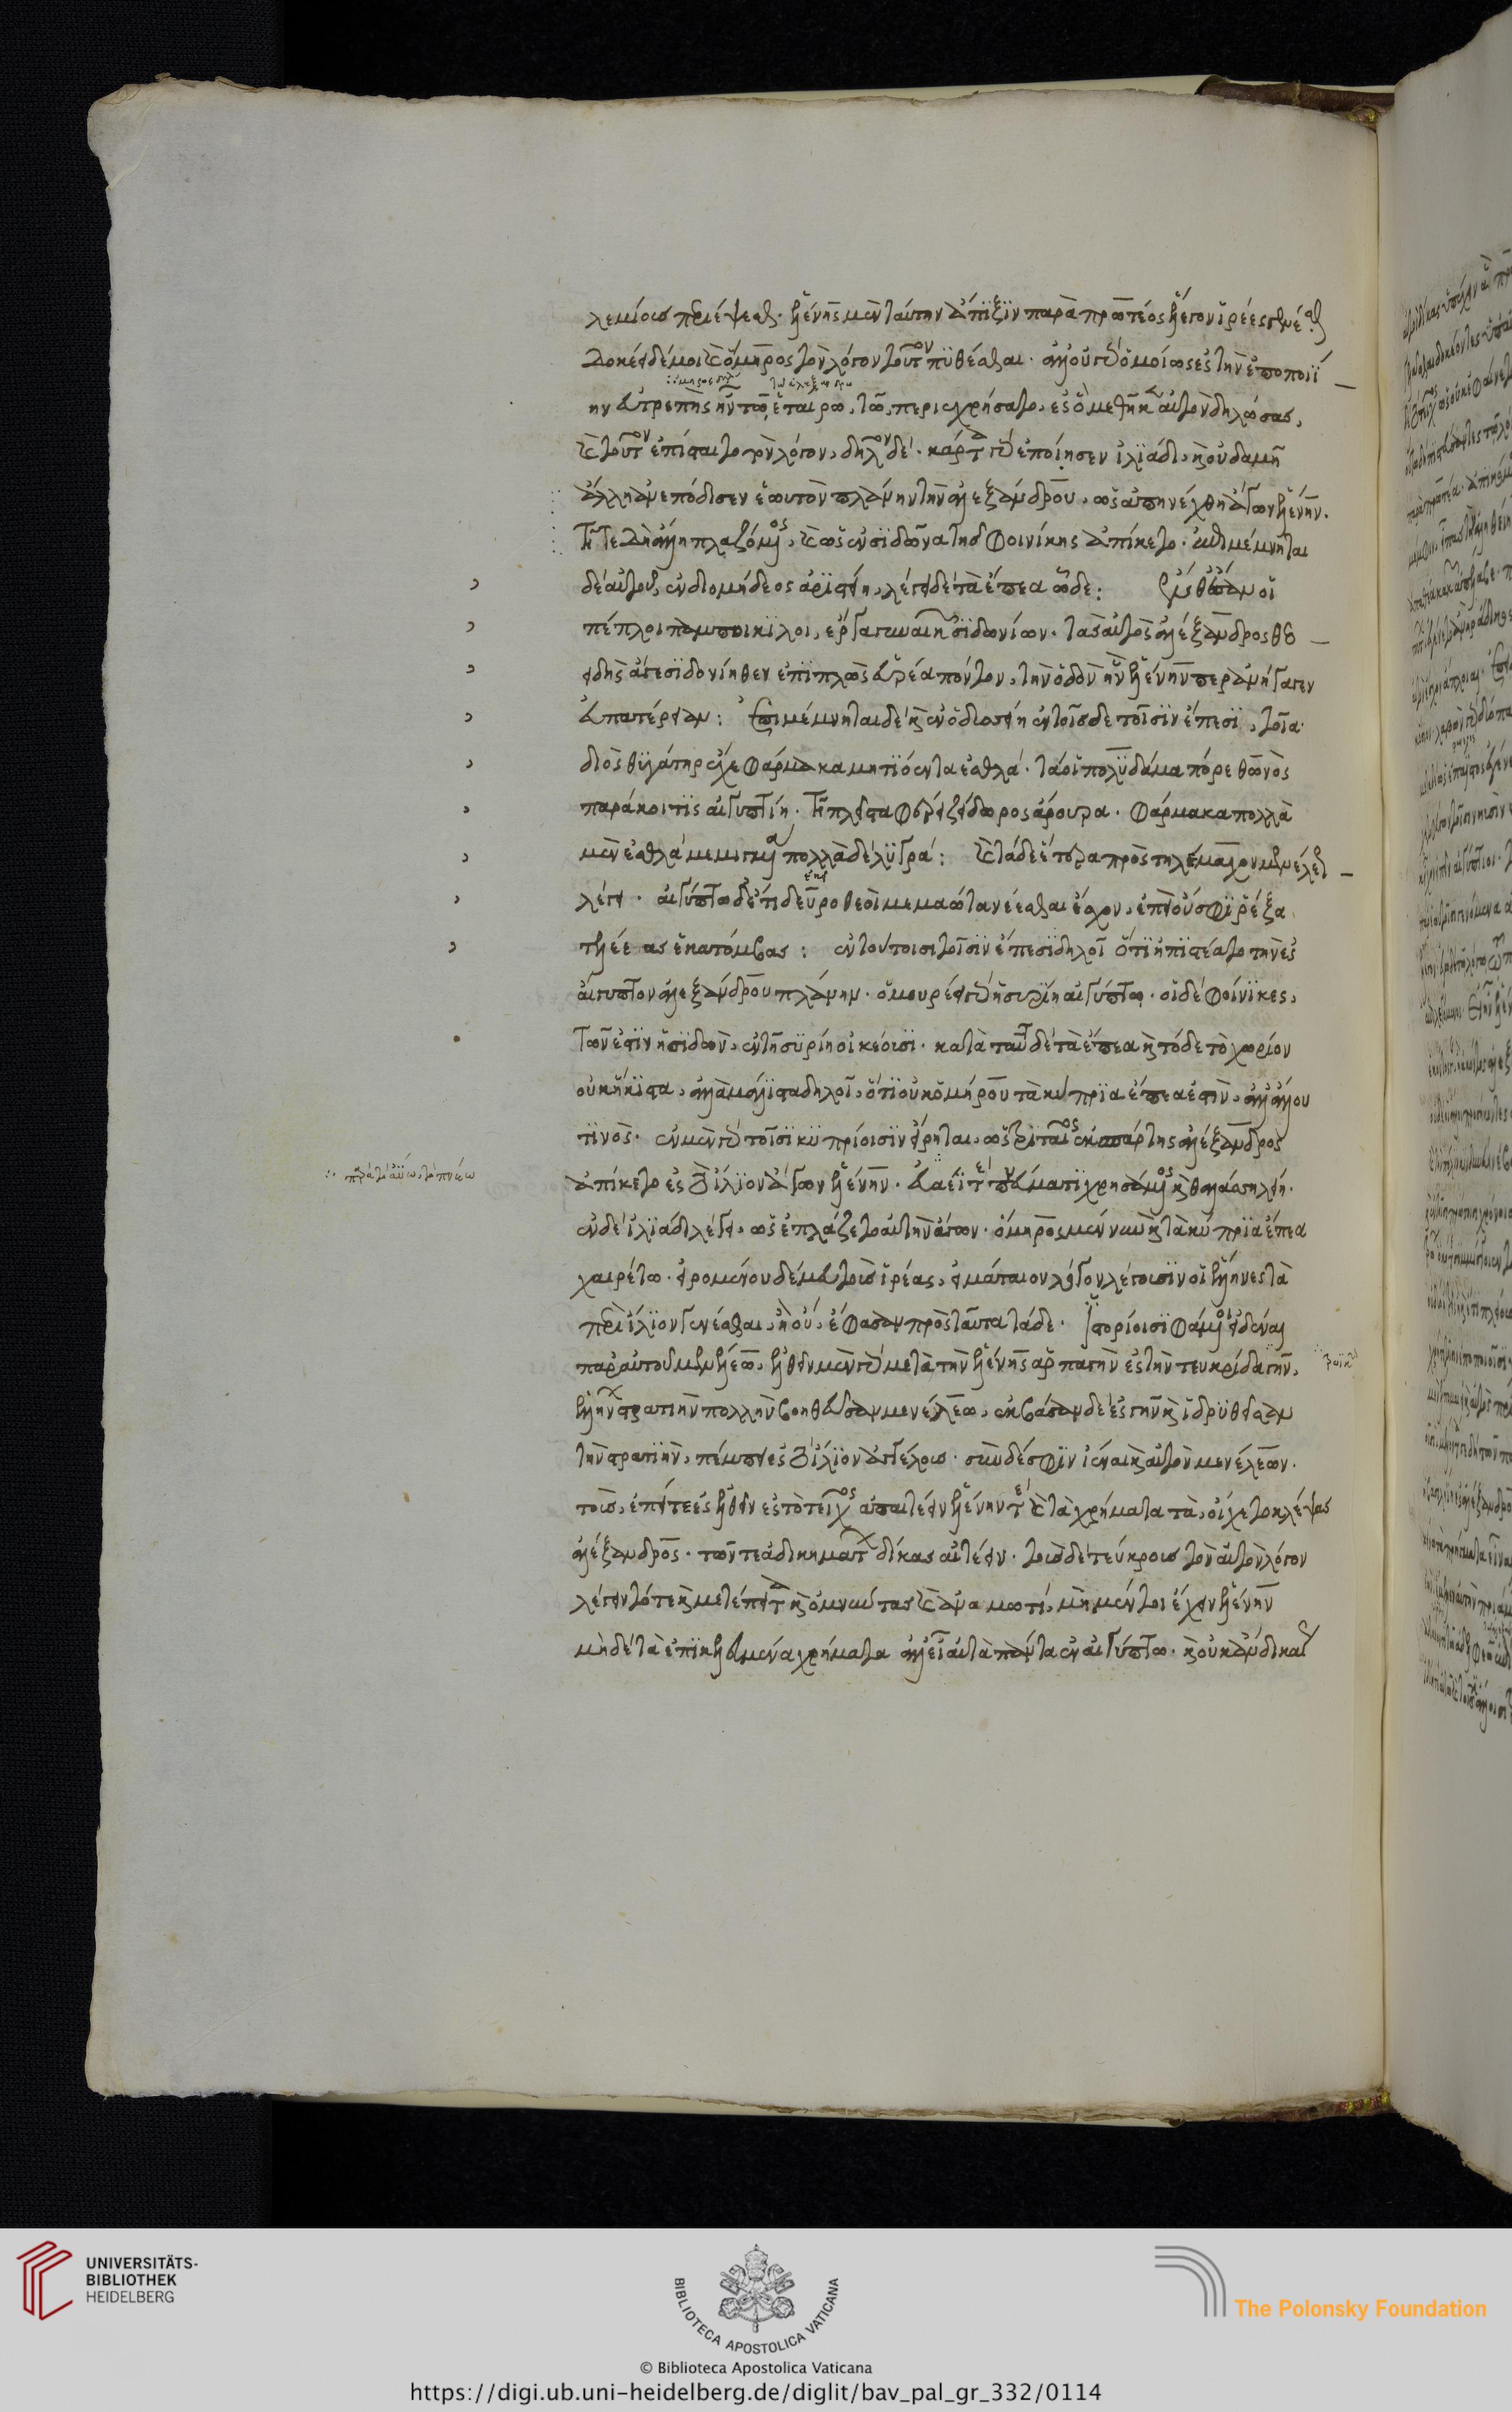 λεμίους περιέψεσθαι. ἑλένης μὲν ταύτην ἄπιξϊν παρὰ πρωτέος ἔλεγον ἱρέες γενέσθαι
δοκέει δέ μοι καὶ ὅμηρος τὸν λόγον τοῦτον πυθέσθαι. ἀλλ' οὐ γὰρ ὁμοίως ἐς τὴν ἐποποιΐ
ην εὐπρεπὴς ἦν τῶ ἑταίρω, τῶ περ ἐχρήσατο, ἐς ὃ μετῆκεν αὐτὸν δηλώσας,
καὶ τοῦτον ἐπίσταιτο τὸν λόγον, δῆλον δέ. κατὰ γὰρ ἐποίησεν ἰλιάδι, καὶ οὐδαμῆ
ἄλλη ἀνεπόδισεν ἑωυτὸν πλάνην τὴν ἀλεξάνδρου, ὡς ἀπηνείχθη ἄγων ἑλένην.
τῆ τε δὴ ἄλλη πλαζόμενος, καὶ ὡς ἐν σϊδῶνα τῆς φοινίκης ἀπίκετο. ἐπιμέμνηται
δὲ αὐτοῦ, ἐν διομήδεος ἀριστείη, λέγει δὲ τὰ ἔπεα ὧδε: ἔνθ' ἔσάν οἱ
πέπλοι παμποικϊλοι, ἔργα γυναικῶν σϊδωνίων. τὰς αὐτὸς ἀλέξανδρος θεο
ειδὴς ἄγε σϊδονίηθεν ἐπϊπλὼς εὐρέα πόντον, τὴν ὁδὸν ἣν ἑλένην περ ἀνήγαγεν
εὐπατέρειαν: ἐπιμέμνηται δὲ καὶ ἐν ὀδυσσείη ἐν τοῖσδε τοῖσϊν ἔπεσϊ, τοῖα
διὸς θϋγάτηρ ἔχε φάρμακα μητϊόεντα ἐσθλά. τά οἱ πολϋδάμα πόρε θωνὸς
παράκοιτϊς αἰγυπτίη. τῆ πλεῖστα φέρει ζείδωρος ἄρουρα. φάρμακα πολλὰ
μὲν ἐσθλὰ μεμιγμένα πολλὰ δὲ λϋγρά: καὶ τάδε ἕτερα πρὸς τηλέμαχον μενέλεως
λέγει. αἰγύπτω δ' ἔτι δεῦρο θεοὶ μεμαῶτα νέεσθαι ἔσχον, ἐπεὶ οὔ σφϊν ἔρεξα
τελέεσσας ἑκατόμβας: ἐν τούτοισι τοῖσϊν ἔπεσϊ δηλοῖ ὅτι ἠπϊστέατο τὴν ἐς
αἴγυπτον ἀλεξάνδρου πλάνην. ὁμουρέει γὰρ ἡ συρίη αἰγύπτω. οἱ δὲ φοίνϊκες,
τῶν ἐστὶν ἡ σϊδὼν, ἐν τῆ συρίη οἰκέουσϊ. κατὰ ταῦτα δὲ τὰ ἔπεα καὶ τόδε τὸ χωρίον
οὐκ ἥκϊστα, ἀλλὰ μάλϊστα δηλοῖ, ὅτι οὐκ ὁμήρου τὰ κύπρϊα ἔπεα ἐστὶν, ἀλλ' ἄλλου
τϊνός. ἐν μὲν γὰρ τοῖσϊ κϋπρίοισϊν εἴρηται, ὡς τριταῖος ἐκ σπάρτης ἀλέξανδρος
ἀπίκετο ἐς τὸ ἴλϊον ἄγων ἑλένην. εὐαεῖ τε πνεύματι χρησάμενος καὶ θαλάσση λείη.
ἐν δὲ ἰλϊάδι λέγει, ὡς ἐπλάζετο αὐτὴν ἄγων. ὅμηρος μέν νυν καὶ τὰ κύπρϊα ἔπεα
χαιρέτω. εἰρομένου δέ μευ τοὺς ἱρέας, εἰ μάταιον λόγον λέγουσϊν οἱ ἕλληνες τὰ
περὶ ἴλϊον γενέσθαι, ἢ οὔ, ἔφασαν πρὸς ταῦτα τάδε. ἱστορίοισϊ φάμενοι εἰδέναι
παρ' αὐτοῦ μενελέω. ἐλθεῖν μὲν γὰρ μετὰ τὴν ἑλένης ἁρπαγὴν ἐς τὴν τευκρίδα γῆν,
ἑλλήνων στρατιὴν πολλὴν βοηθεῦσαν μενέλεω, ἐκβάσαν δὲ ἐς γῆν καὶ ἱδρϋθεῖσαν
τὴν στρατϊὴν, πέμπειν ἐς τὸ ἴλϊον ἀγγέλους. σὺν δέ σφϊν ἰέναι καὶ αὐτὸν μενέλεων.
τοὺς, ἐπεί τε ἐσελθεῖν ἐς τὸ τεῖχος ἀπαιτέειν ἑλένην τε καὶ τὰ χρήματα τὰ, οἴχετο κλέψας
ἀλέξανδρος. τῶν τε ἀδικημάτων δίκας αἰτέειν. τοὺς δὲ τεύκρους τὸν αὐτὸν λόγον
λέγειν τότε καὶ μετέπειτα καὶ ὀμνύντας καὶ ἀνωμοτί, μὴ μέν τοι ἔχειν ἑλένην
μὴ δὲ τὰ ἐπϊκαλεύμενα χρήματα ἀλλ' εἶναι αὐτὰ πάντα ἐν αἰγύπτω. καὶ οὐκ ἂν δικαί
UNIVERSITÄTS-
BIBLIOTHEK
HEIDELBERG
BIBLIOTECA APOSTOLICA VATICANA
The Polonsky Foundation
© Biblioteca Apostolica Vaticana
https://digi.ub.uni-heidelberg.de/diglit/bav_pal_gr_332/0114